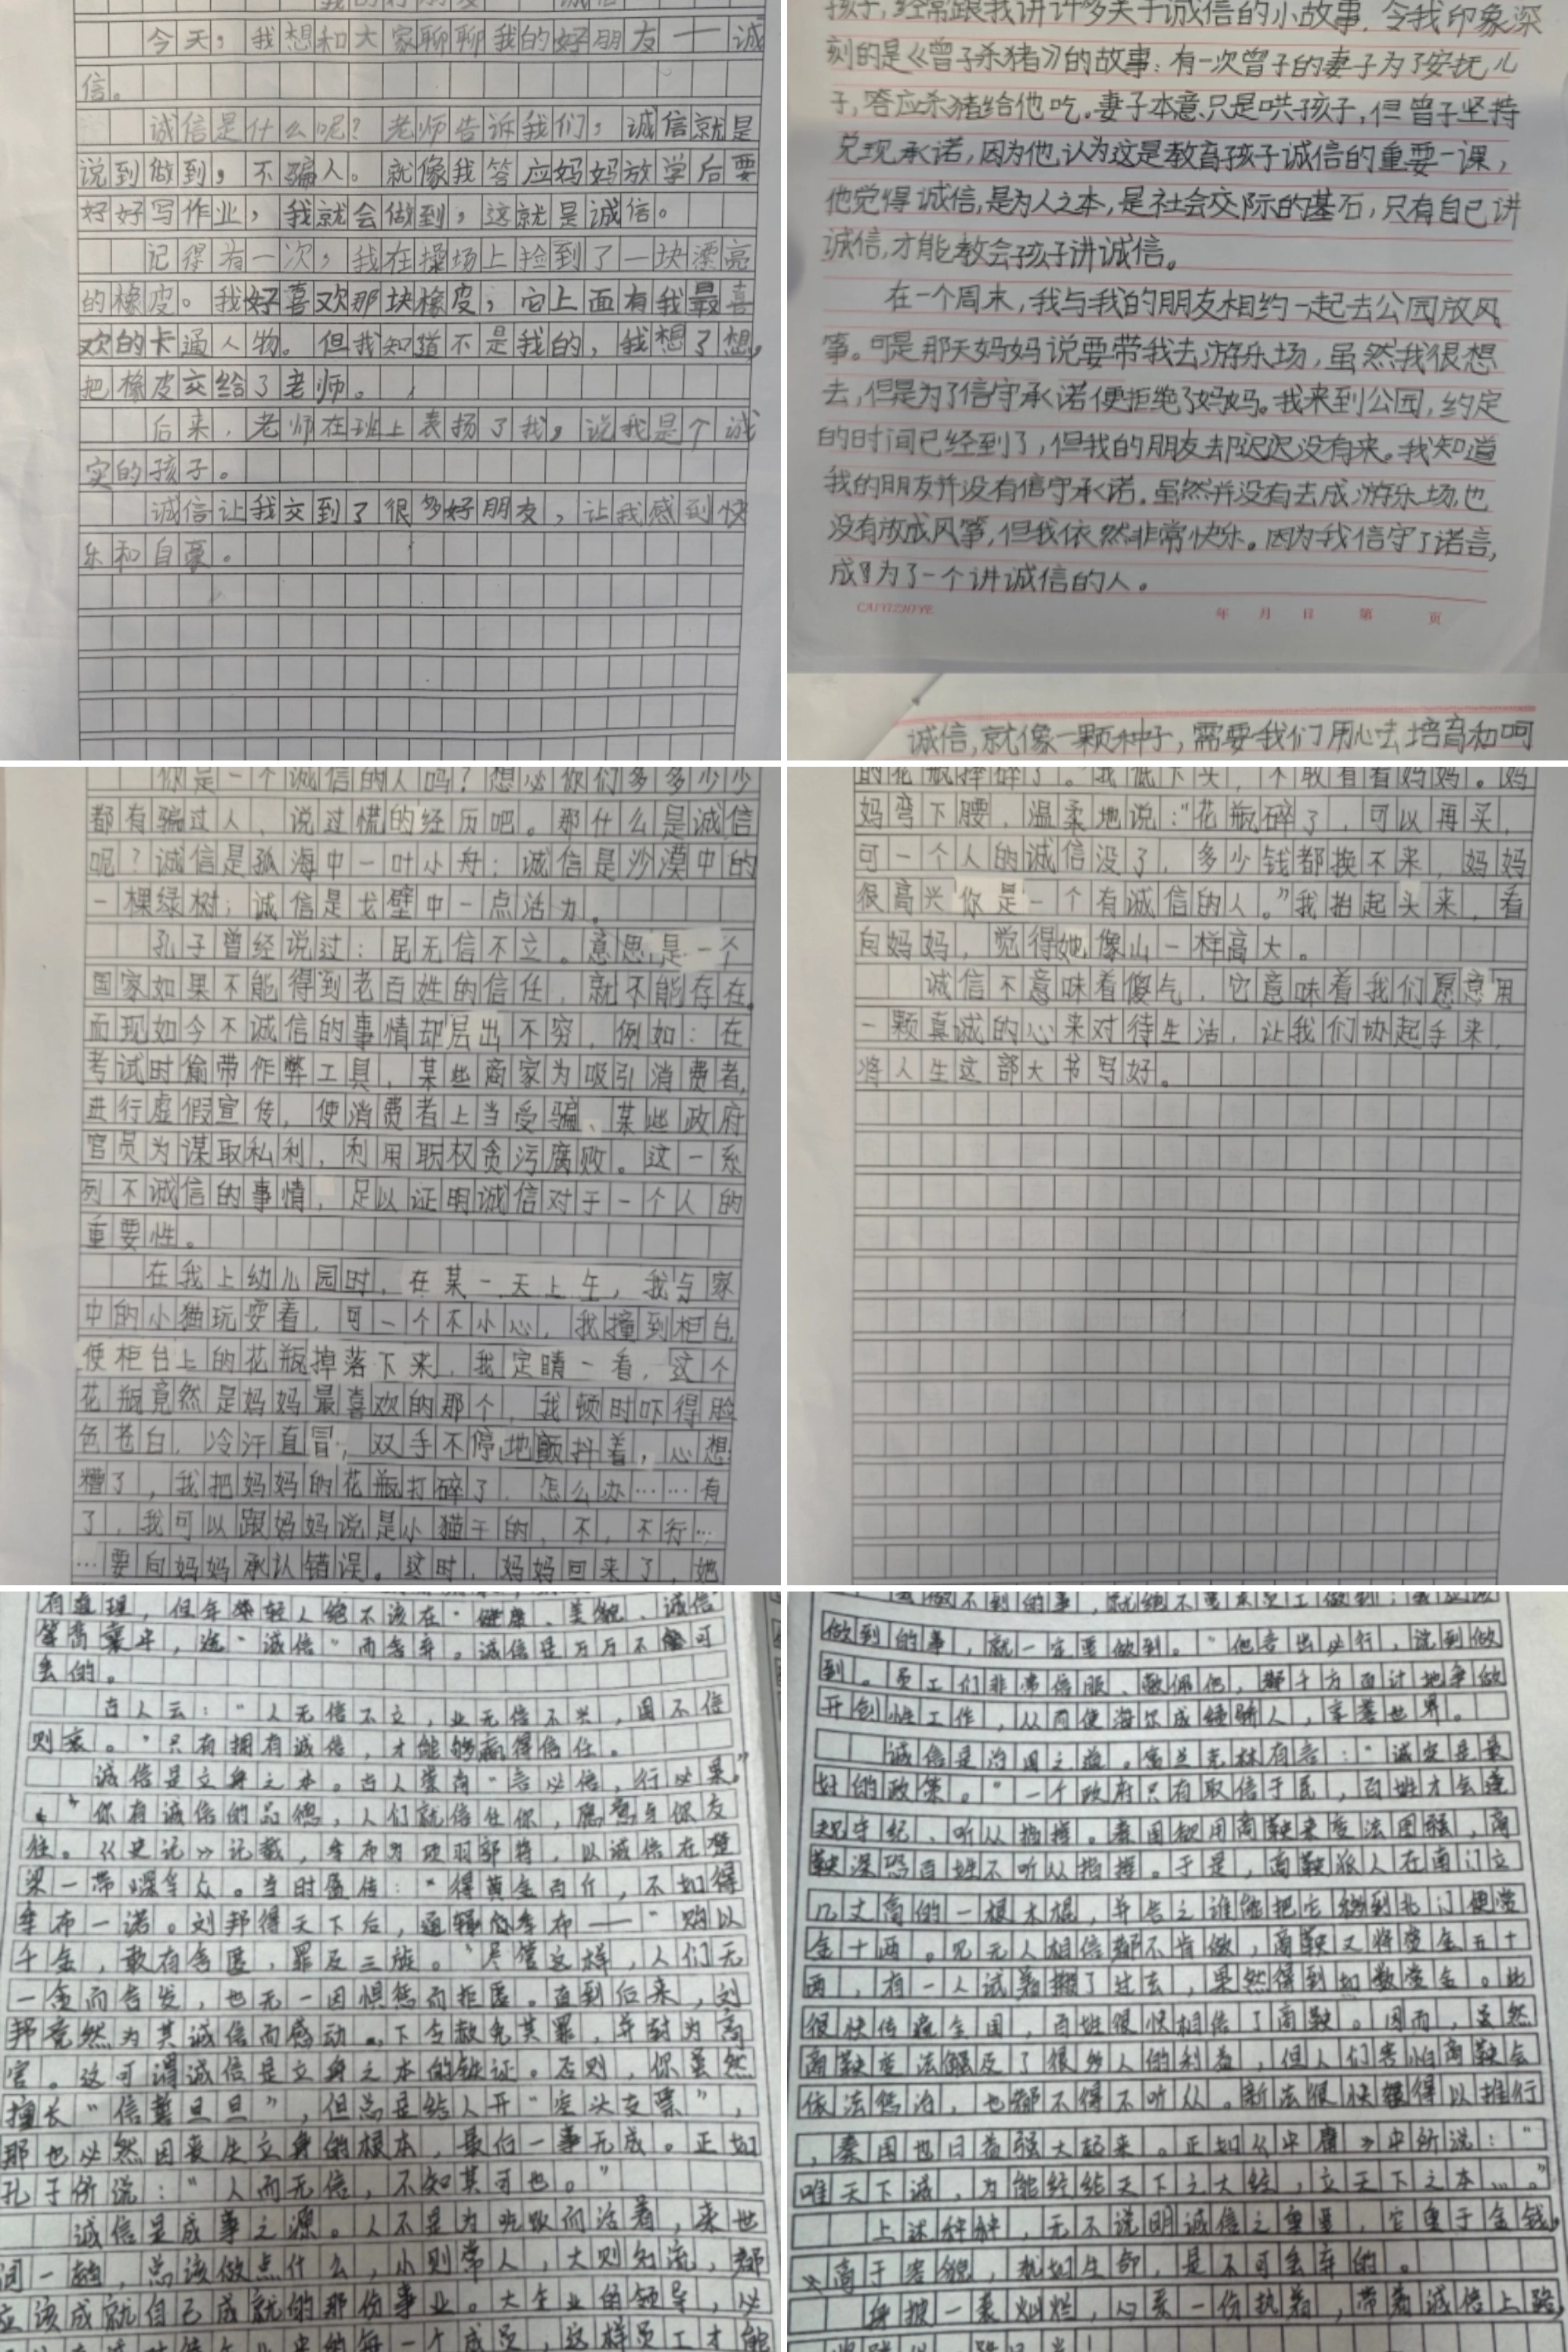 今天，我想和大家聊聊我的好朋友——诚
信。
诚信是什么呢？老师告诉我们，诚信就是
说到做到，不骗人。就像我答应妈妈放学后要
好好写作业，我就会做到，这就是诚信。
记得有一次，我在操场上捡到了一块漂亮
的橡皮。我好喜欢那块橡皮，它上面有我最喜
欢的卡通人物。但我知道不是我的，我想了想，
把橡皮交给了老师。
后来，老师在班上表扬了我，说我是个诚
实的孩子。
诚信让我交到了很多好朋友，让我感到快
乐和自豪。
孩子，经常跟我讲许多关于诚信的小故事，令我印象深
刻的是《曾子杀猪》的故事：有一次曾子的妻子为了安抚儿
子，答应杀猪给他吃。妻子本意只是哄孩子，但曾子坚持
兑现承诺，因为他认为这是教育孩子诚信的重要一课，
他觉得诚信，是为人之本，是社会交际的基石，只有自己讲
诚信，才能教会孩子讲诚信。
在一个周末，我与我的朋友相约一起去公园放风
筝。可是那天妈妈说要带我去游乐场，虽然我很想
去，但是为了信守承诺便拒绝了妈妈。我来到公园，约定
的时间已经到了，但我的朋友却迟迟没有来。我知道
我的朋友并没有信守承诺。虽然并没有去成游乐场，也
没有放成风筝，但我依然非常快乐。因为我信守了诺言，
成为了一个讲诚信的人。
CAIYIZHIYE 年 月 日 第 页
诚信，就像一颗种子，需要我们用心去培育和呵
你是一个诚信的人吗？想必你们多多少少
都有骗过人，说过慌的经历吧。那什么是诚信
呢？诚信是孤海中一叶小舟；诚信是沙漠中的
一棵绿树；诚信是戈壁中一点活力。
孔子曾经说过：民无信不立。意思是一个
国家如果不能得到老百姓的信任，就不能存在。
而现如今不诚信的事情却层出不穷，例如：在
考试时偷带作弊工具，某些商家为吸引消费者，
进行虚假宣传，使消费者上当受骗、某些政府
官员为谋取私利，利用职权贪污腐败。这一系
列不诚信的事情，足以证明诚信对于一个人的
重要性。
在我上幼儿园时，在某一天上午，我与家
中的小猫玩耍着，可一个不小心，我撞到柜台，
使柜台上的花瓶掉落下来，我定睛一看，这个
花瓶竟然是妈妈最喜欢的那个，我顿时吓得脸
色苍白，冷汗直冒，双手不停地颤抖着，心想：
糟了，我把妈妈的花瓶打碎了，怎么办……有
了，我可以跟妈妈说是小猫干的，不，不行…
…要向妈妈承认错误。这时，妈妈回来了，她
的花瓶摔碎了。”我低下头，不敢看着妈妈。妈
妈弯下腰，温柔地说：“花瓶碎了，可以再买，
可一个人的诚信没了，多少钱都换不来，妈妈
很高兴你是一个有诚信的人。”我抬起头来，看
向妈妈，觉得她像山一样高大。
诚信不意味着傻气，它意味着我们愿意用
一颗真诚的心来对待生活，让我们协起手来，
将人生这部大书写好。
有道理，但年轻人绝不该在“健康、美貌、诚信”
等高囊中，选“诚信”而舍弃。诚信是万万不可
丢的。
古人云：“人无信不立，业无信不兴，国不信
则衰。”只有拥有诚信，才能够赢得信任。
诚信是立身之本。古人崇尚“言必信，行必果。”
你有诚信的品德，人们就信任你，愿意与你友
往。《史记》记载，季布为项羽部将，以诚信在楚
梁一带深等众。当时盛传：“得黄金百斤，不如得
季布一诺。刘邦得天下后，通辑季布——“购以
千金，敢有舍匿，罪及三族。”尽管这样，人们无
一贪而告发，也无一因惧惩而拒匿。直到后来，刘
邦竟然为其诚信而感动，下令赦免其罪，并封为高
官。这可谓诚信是立身之本的铁证。否则，你虽然
擅长“信誓旦旦”，但总是给人开“空头支票”，
那也必然因丧失立身的根本，最后一事无成。正如
孔子所说：“人而无信，不知其可也。”
诚信是成事之源。人不是为吃饭而活着，来世
间一趟，总该做点什么，小则常人，大则名流，都
应该成就自己成就的那份事业。大企业的领导，必
做不到的事，就绝不要求员工做到；我应该
做到的事，就一定要做到。“他言出必行，说到做
到。员工们非常信服、敬佩他，都千方百计地争做
开创性工作，从而使海尔成绩骄人，享誉世界。
诚信是治国之道。富兰克林有言：“诚实是最
好的政策。”一个政府只有取信于民，百姓才会遵
规守纪、听从指挥。秦国欲用商鞅来变法图强，商
鞅深恐百姓不听从指挥。于是，商鞅派人在南门立
几丈高的一根木棍，并告之谁能把它搬到北门便赏
金十两。见无人相信都不肯做，商鞅又将赏金五十
两，有一人试着搬了过去，果然得到如数赏金。此
很快传遍全国，百姓很快相信了商鞅。因而，虽然
商鞅变法触及了很多人的利益，但人们害怕商鞅会
依法惩治，也都不得不听从。新法很快得以推行
，秦国也日益强大起来。正如《中庸》中所说：“
唯天下诚，为能经纶天下之大经，立天下之本…。”
上述种种，无不说明诚信之重要，它重于金钱，
高于容貌，就如生命，是不可丢弃的。
身披一袭灿烂，心系一份执着，带着诚信上路，